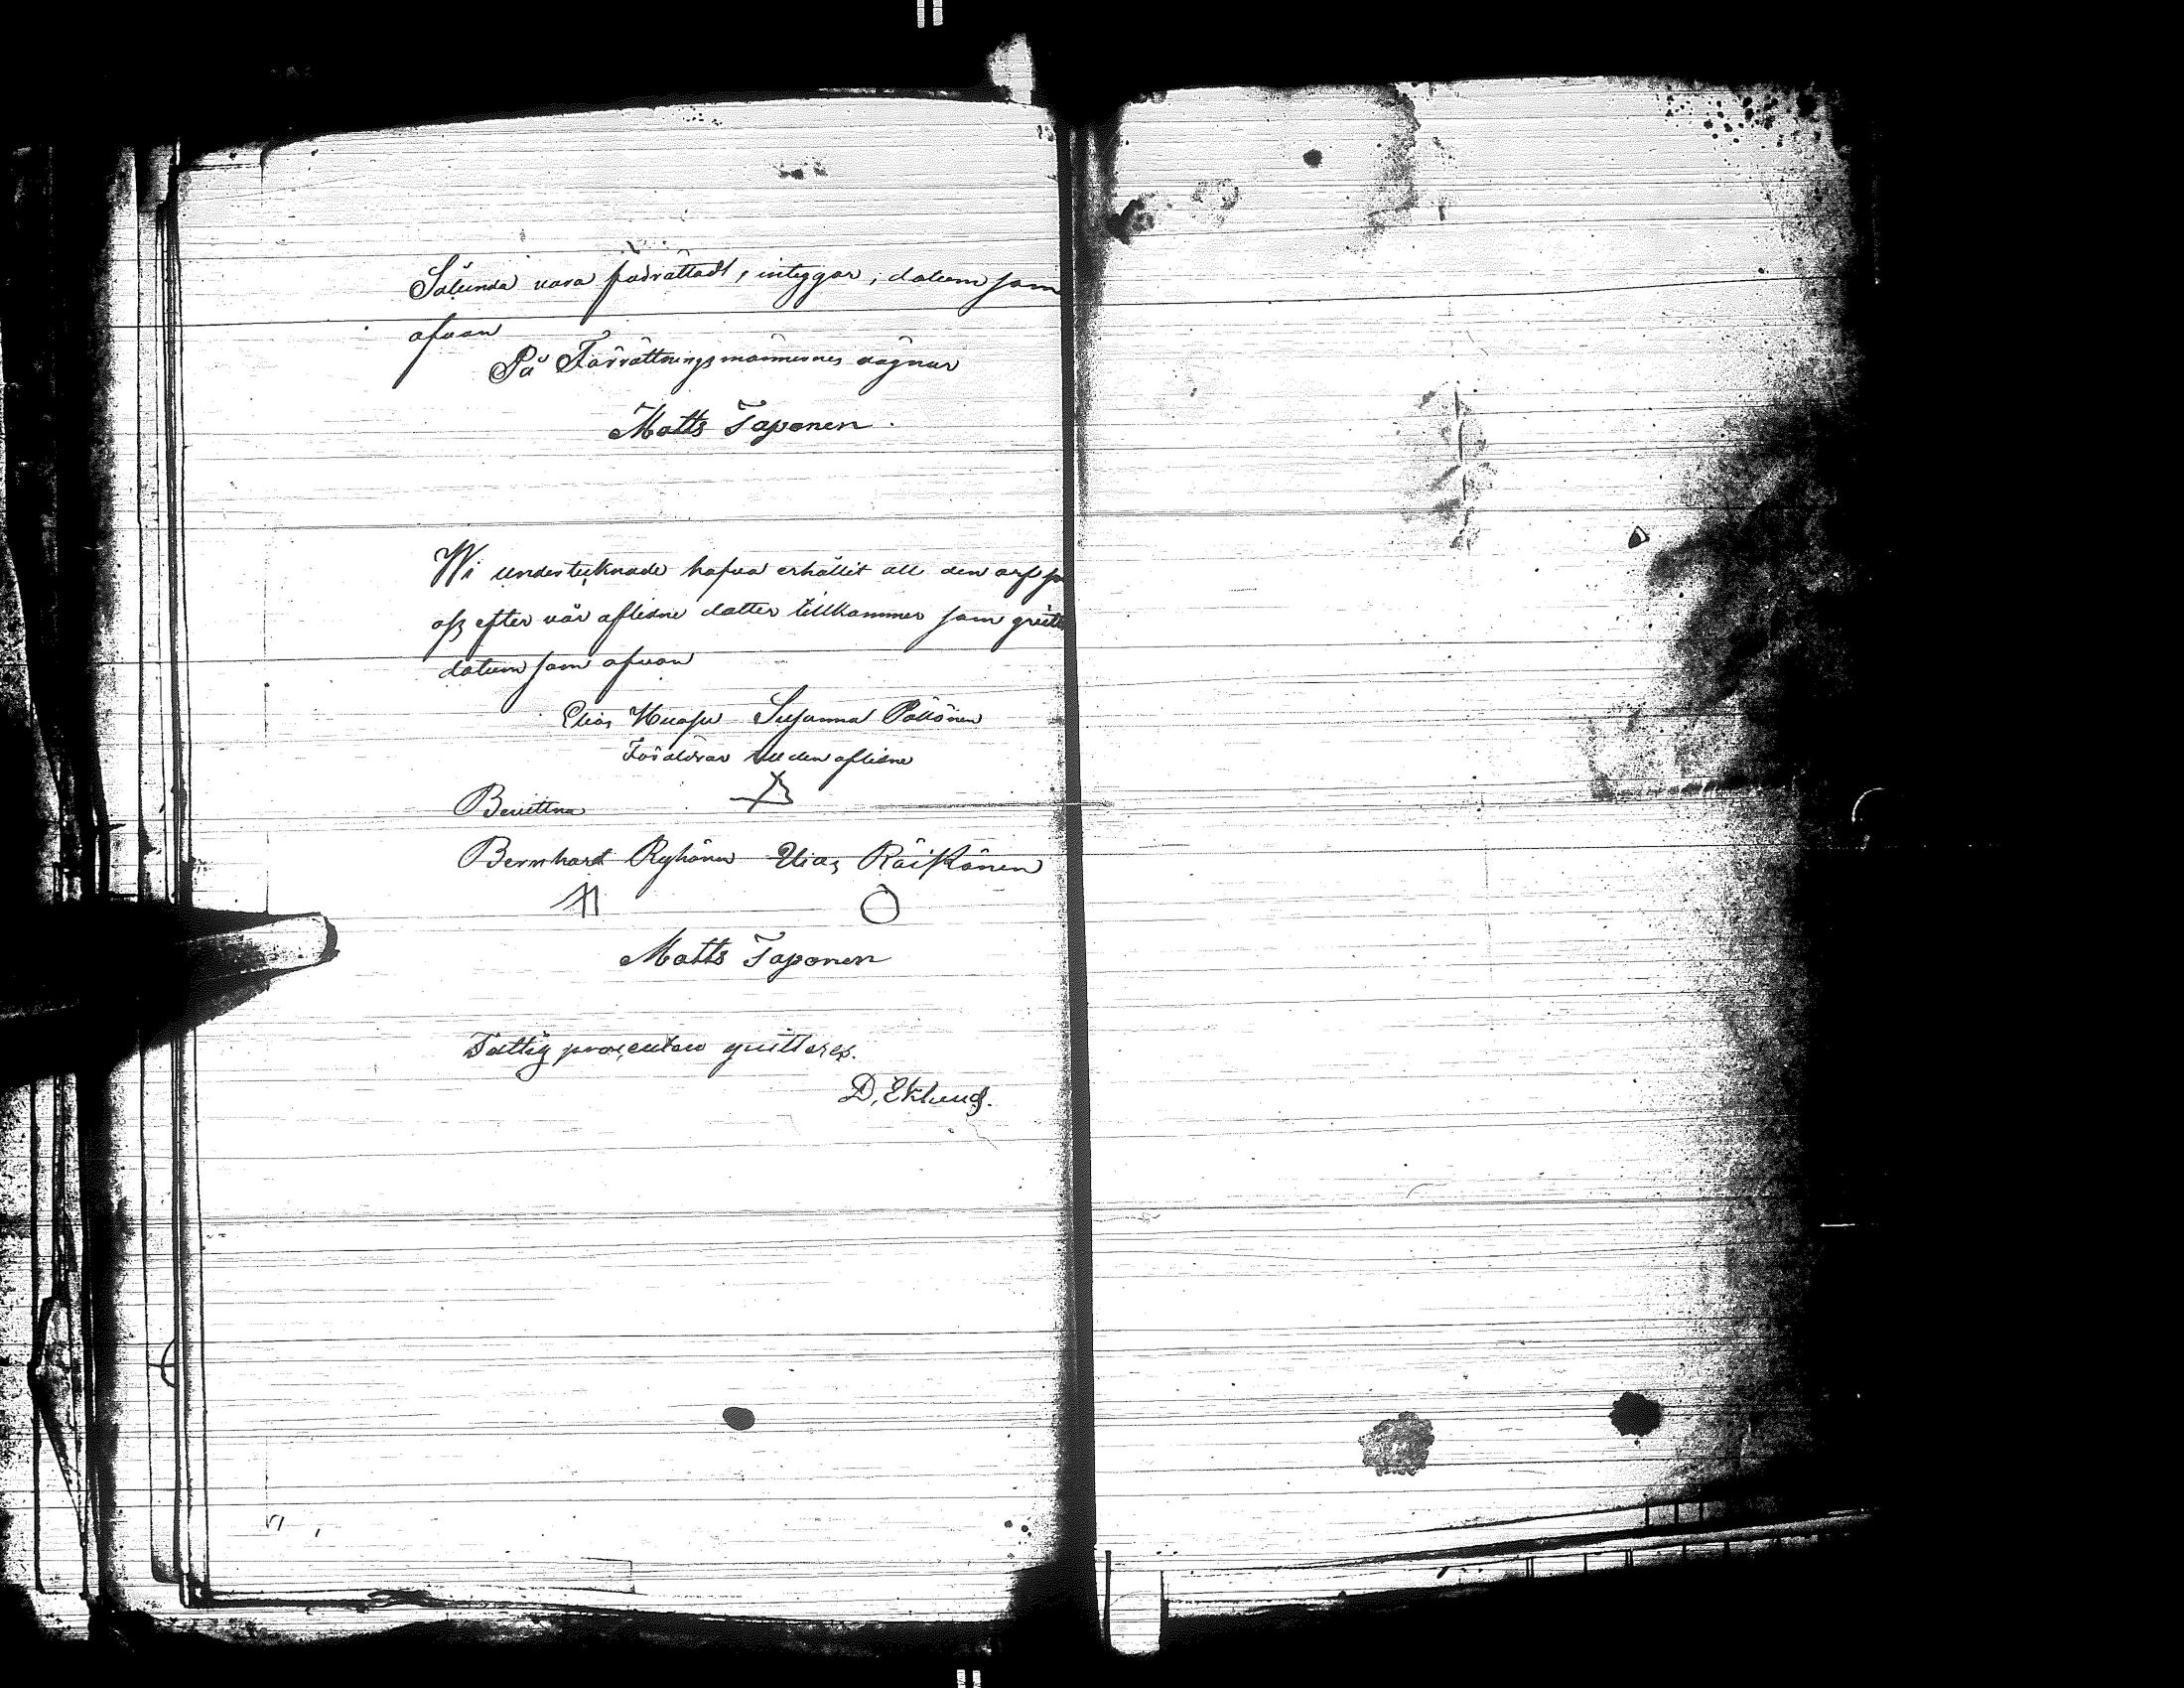 Sålunda vara förrättadt, intygar, datum som
ofvan
På Förrättningsmännernes vägnar
Matts Taponen.
Wi undertecknade hafva erhållit all den arf so
oss efter vår aflidne dotter tillkommer som qvitt
datum som ofvan
Elias Susanna Pöllönen
Föräldrar till den aflidne
Bevittna
Bernhard Ryhänen Elias Räikönen
Matts Taponen
Fattig procenten quitteras.
D. Eklund.